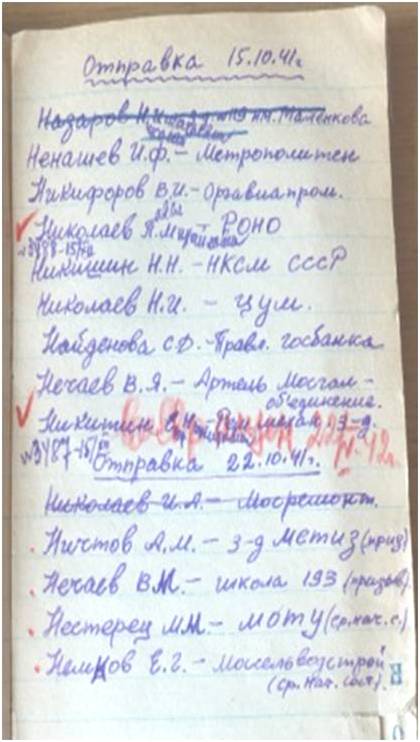 Отправка 15.10.41г
Назаров Н.И. з-д №19 им. Маленкова
Ненашев И.Ф. – Метрополитен
Никифоров В.И. – Оргавиапром.
Николаев П.М. – РОНО
№3488-15/
Никишин Н.Н. – НКСМ СССР
Николаев Н.И. – ЦУМ.
Найденова С.Д. – Правл. госбанка
Нечаев В.Я. – Артель Мосгал-
объединение.
Никитин
№3487-15/
Отправка 22.10.41г.
Николаев И.А. – Мосремонт.
Ничтов А.М. – з-д Метиз (приз)
Нечаев В.М. – школа 193 (призов)
Нестерец М.М. – МОТУ (ср.нач.с.)
Немков Е.Г. – Мосельвозстрой
(ср. нач. сост.).